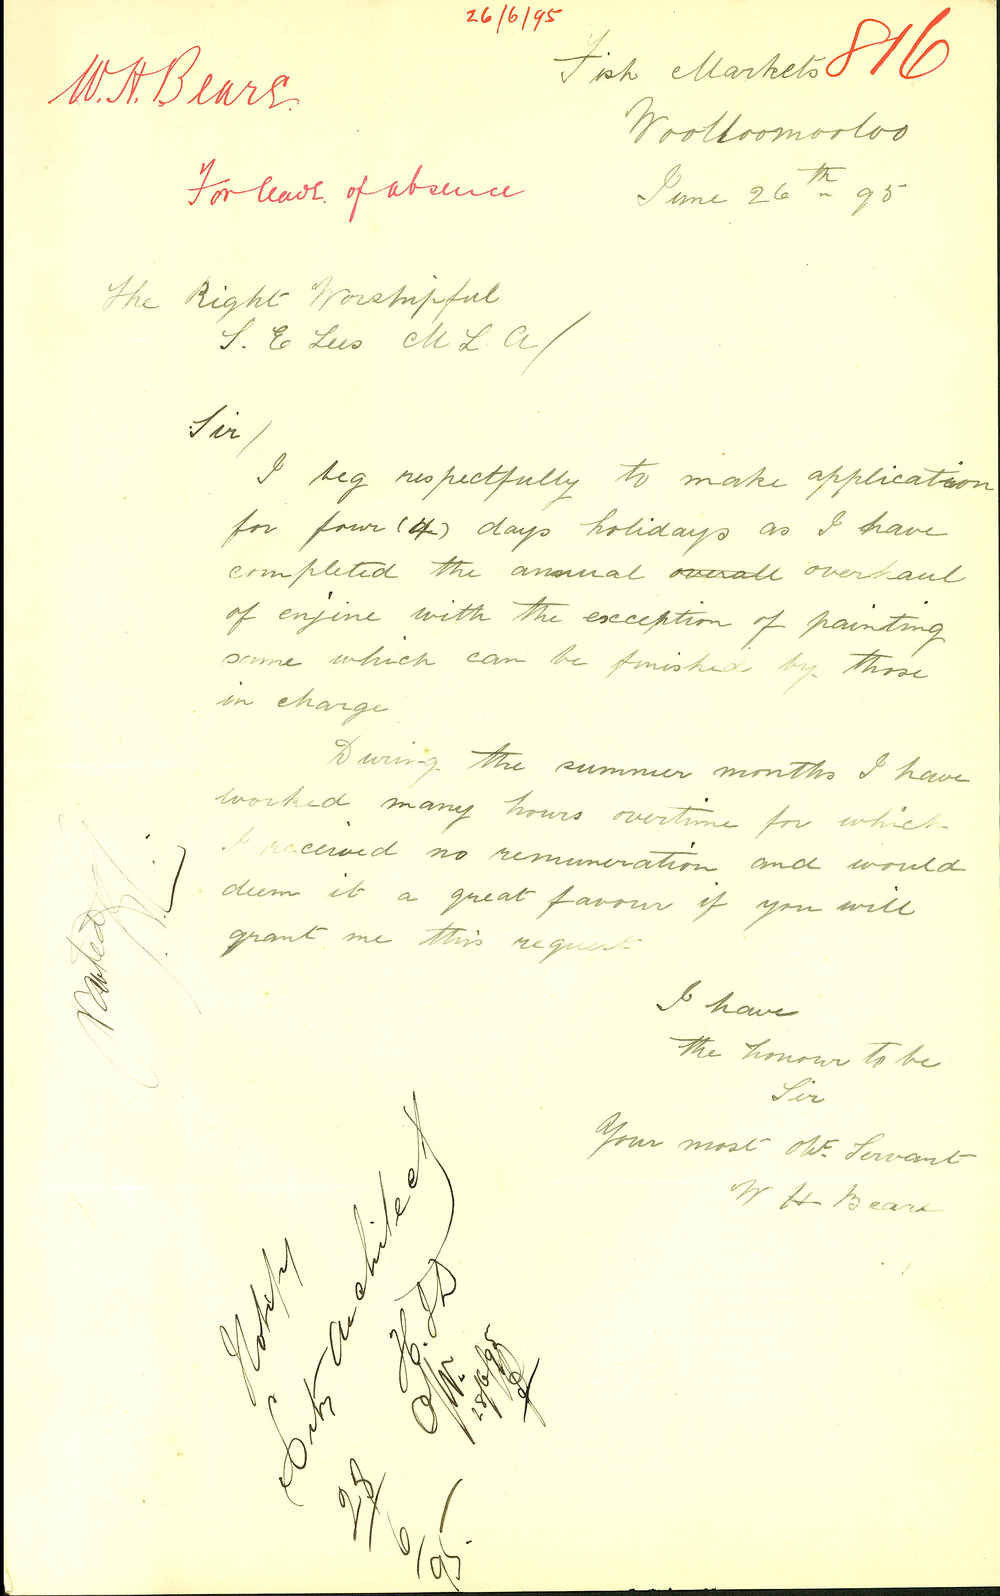 26/6/95
816
W.H. Beare.
For leave of absence
Fish Markets
Woolloomooloo
June 26th 95
The Right Worshipful
S. E Lees M L A/
Sir/
I beg respectfully to make application
for four (4) days holidays as I have
completed the annual overall overhaul
of engine with the exception of painting
same which can be finished by those
in charge
During the summer months I have
worked many hours overtime for which
I received no remuneration and would
deem it a great favour if you will
grant me this request
I have
the honour to be
Sir
Your most Obt. Servant
W H Beare
Noted
Notify
City Architect
28/6/95
28/6/95